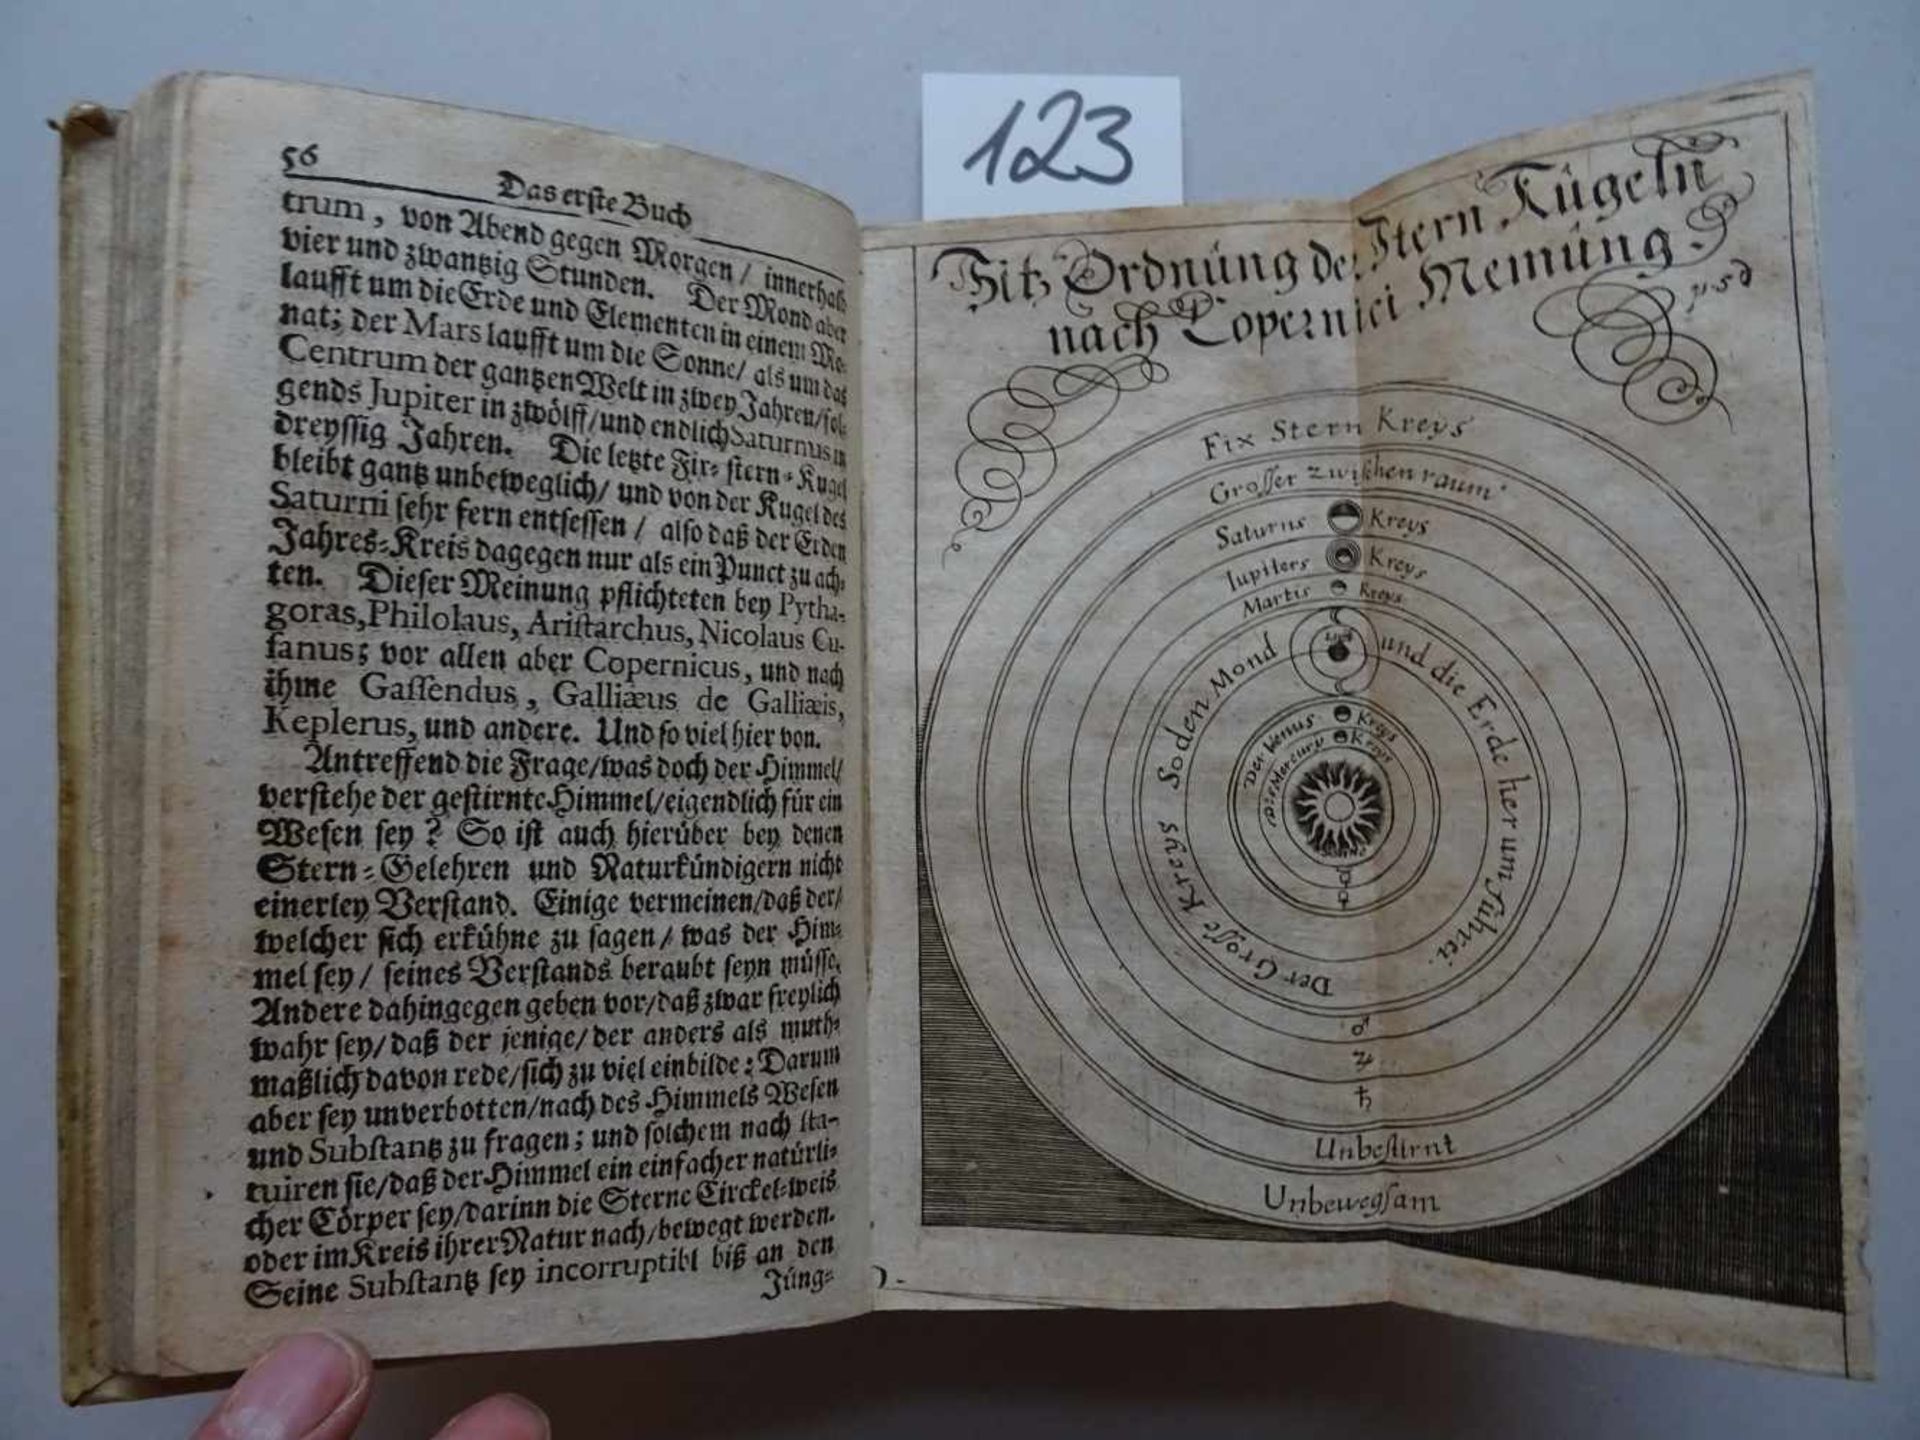 123
56
Das erste Buch
trum, von Abend gegen Morgen / innerhalb
vier und zwantzig Stunden. Der Mond aber
laufft um die Erde und Elementen in einem Mo-
nat; der Mars laufft um die Sonne / als um das
Centrum der gantzen Welt in zwey Jahren / fol-
gends Jupiter in zwölff / und endlich Saturnus in
dreyssig Jahren. Die letzte Fix-stern-Kugel
bleibt gantz unbeweglich / und von der Kugel des
Saturni sehr fern entsessen / also daß der Erden
Jahres-Kreis dagegen nur als ein Punct zu ach-
ten. Dieser Meinung pflichteten bey Pytha-
goras, Philolaus, Aristarchus, Nicolaus Cu-
sanus; vor allen aber Copernicus, und nach
ihme Gassendus, Galliæus de Galliæis,
Keplerus, und andere. Und so viel hier von.
Antreffend die Frage / was doch der Himmel /
verstehe der gestirnte Himmel / eigendlich für ein
Wesen sey? So ist auch hierüber bey denen
Stern-Gelehren und Naturkündigern nicht
einerley Verstand. Einige vermeinen / daß der /
welcher sich erkühne zu sagen / was der Him-
mel sey / seines Verstands beraubt seyn müsse.
Andere dahingegen geben vor / daß zwar freylich
wahr sey / daß der jenige / der anders als muth-
maßlich davon rede / sich zu viel einbilde: Darum
aber sey unverbotten / nach des Himmels Wesen
und Substantz zu fragen; und solchem nach sta-
tuiren sie / daß der Himmel ein einfacher natürli-
cher Cörper sey / darinn die Sterne Circkel-weis
oder im Kreis ihrer Natur nach / bewegt werden.
Seine Substantz sey incorruptibl biß an den
Jüng-
Sitz Ordnung der Stern Kugeln
nach Copernici Meinung
Fix Stern Kreys
Grosser zwischen raum
Saturns Kreys
Iupiters Kreys
Martis Kreys
Der Grosse Kreys So den Mond und die Erde herum führet.
Der Venus Kreys
Des Mercury Kreys
☿
♀
♂
♃
♄
Unbestirnt
Unbewegsam